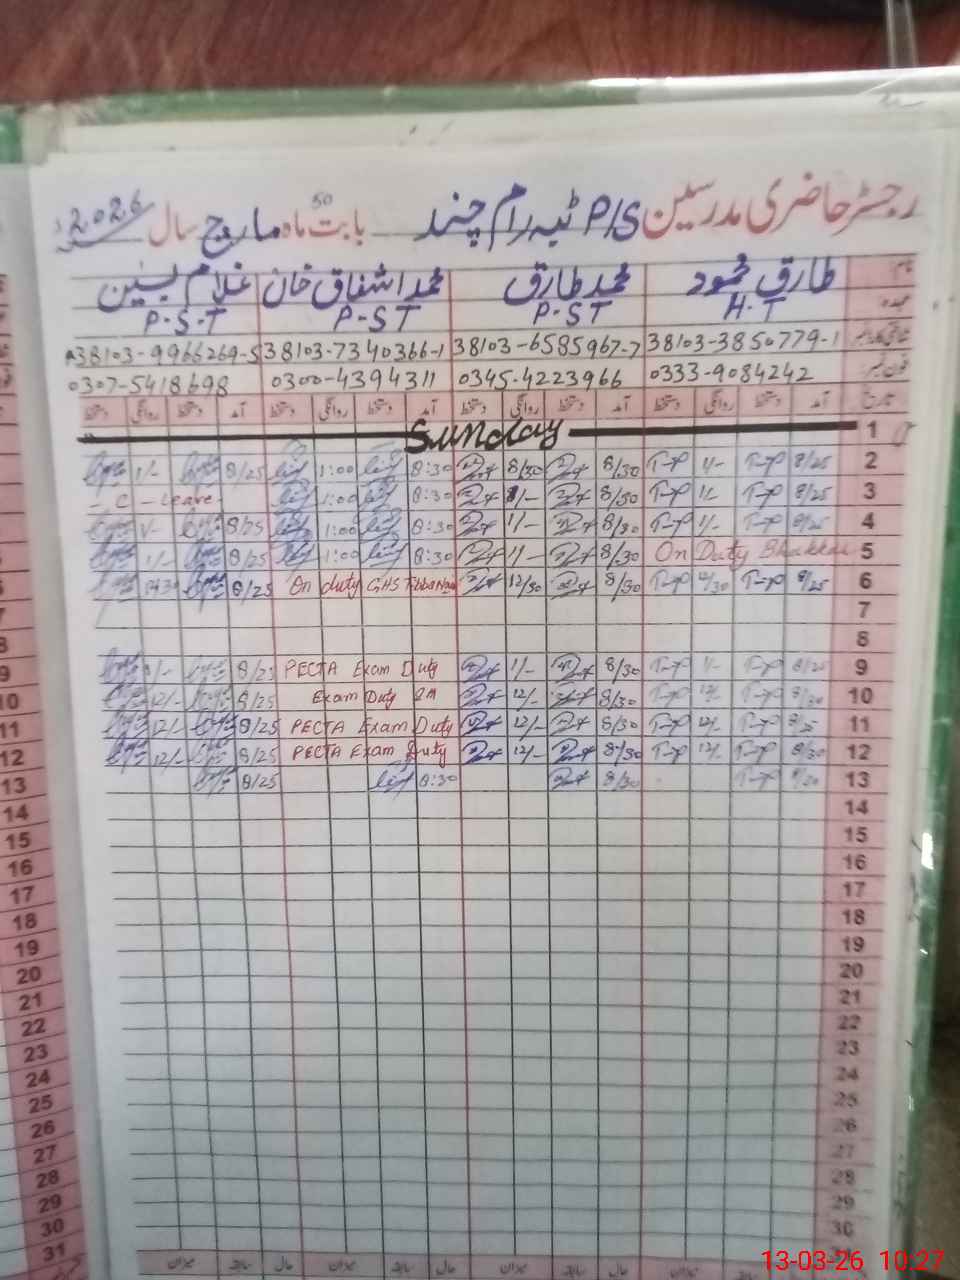 رجسٹر حاضری مدرسین P/S ٹبہ رام چند بابت ماہ مارچ سال 2026
50
طارق محمود محمد طارق محمد اشفاق خان غلام یٰسین
H.T P.ST P.ST P.S.T
38103-3850779-1 38103-6585967-7 38103-7340366-1 38103-9966269-5
0333-9084242 0345-4223966 0300-4394311 0307-5418698
تاریخ آمد دستخط روانگی دستخط آمد دستخط روانگی دستخط آمد دستخط روانگی دستخط آمد دستخط روانگی دستخط
1 Sunday
2 8/25 1/- 8/30 8/30 8:30 1:00 8/25 1/-
3 8/25 1/- 8/30 1/- 8:30 1:00 C-Leave
4 8/25 1/- 8/30 1/- 8:30 1:00 8/25 1/-
5 On Duty Bhakkar 8/30 1/- 8:30 1:00 8/25 1/-
6 8/25 12/30 8/30 12/30 On duty GHS 8/25
7
8
9 8/25 1/- 8/30 1/- PECTA Exam Duty 8/25 1/-
10 8/30 12/- 8/30 12/- Exam Duty 8/25 12/-
11 8/25 12/- 8/30 12/- PECTA Exam Duty 8/25 12/-
12 8/30 12/- 8/30 12/- PECTA Exam Duty 8/25 12/-
13 8/30 8/30 8:30 8/25
14
15
16
17
18
19
20
21
22
23
24
25
26
27
28
29
30
31
میزان سابقہ حال میزان سابقہ حال میزان سابقہ حال میزان
13-03-26 10:27